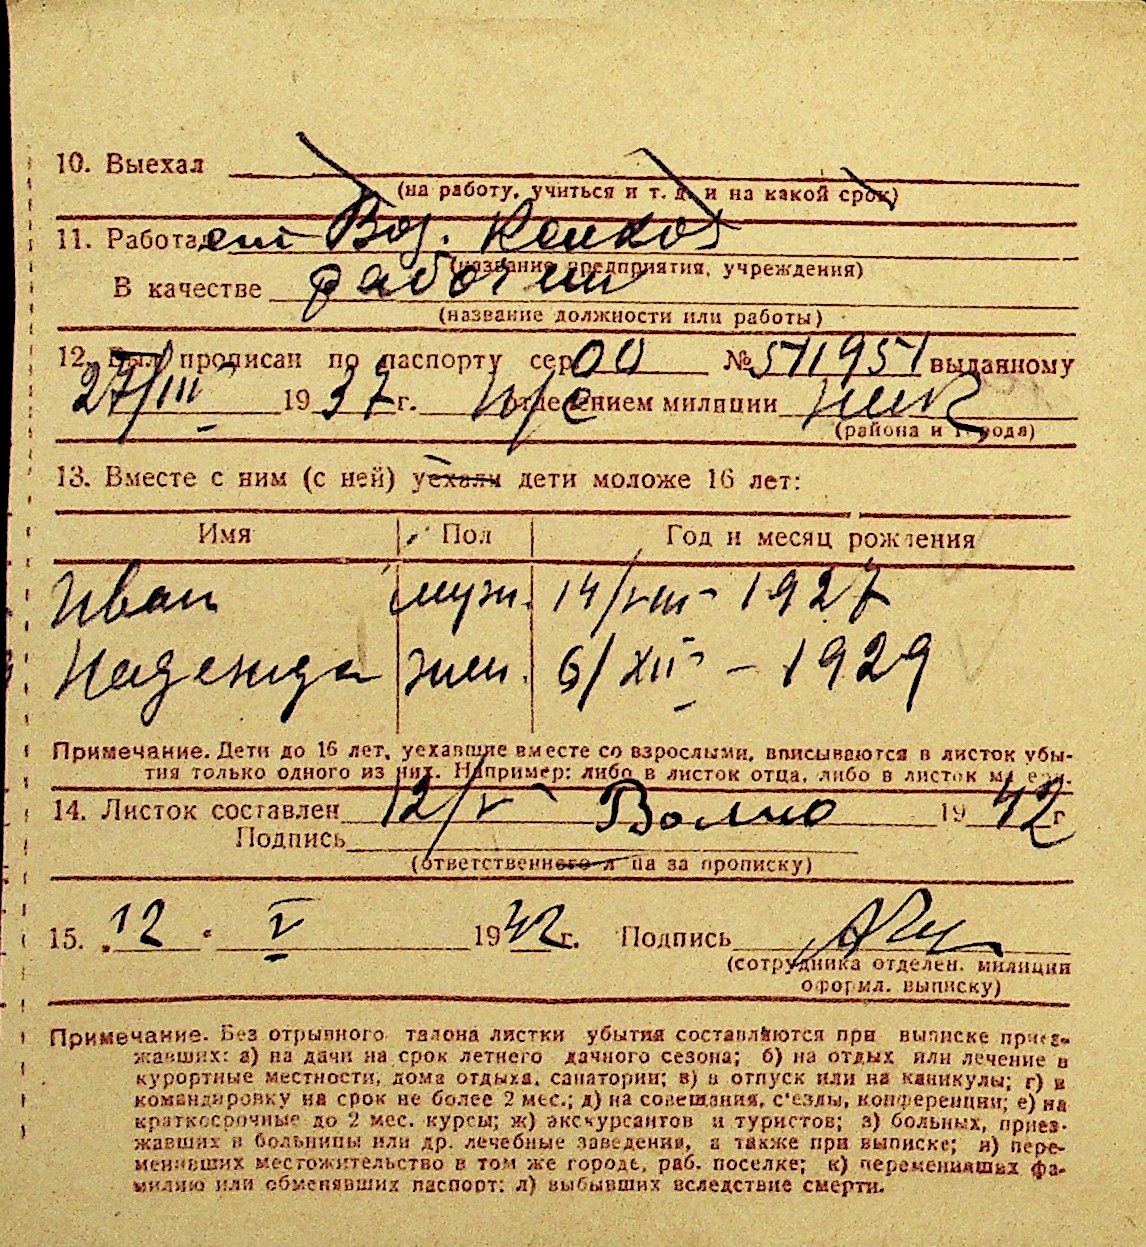 10. Выехал
(на работу, учиться и т. д. и на какой срок)
11. Работает Вод.
(название предприятия, учреждения)
В качестве рабочий
(название должности или работы)
12. Был прописан по паспорту сер. ОО № 511951 выданному
27/III 1937 г. отделением милиции
(района и города)
13. Вместе с ним (с ней) уехали дети моложе 16 лет:
Имя Пол Год и месяц рождения
Иван муж. 14/VIII - 1927
Надежда жен. 6/XII - 1929
Примечание. Дети до 16 лет, уехавшие вместе со взрослыми, вписываются в листок убы-
тия только одного из них. Например: либо в листок отца, либо в листок матери.
14. Листок составлен 12/V 1942 г
Подпись
(ответственного л па за прописку)
15. 12 V 1942 г. Подпись
(сотрудника отделен. милиции
оформл. выписку)
Примечание. Без отрывного талона листки убытия составляются при выписке приез-
жавших: а) на дачи на срок летнего дачного сезона; б) на отдых или лечение в
курортные местности, дома отдыха, санатории; в) в отпуск или на каникулы; г) в
командировку на срок не более 2 мес.; д) на совещания, с'езды, конференции; е) на
краткосрочные до 2 мес. курсы; ж) экскурсантов и туристов; з) больных, приез-
жавших в больницы или др. лечебные заведения, а также при выписке; и) пере-
менивших местожительство в том же городе, раб. поселке; к) переменивших фа-
милию или обменявших паспорт; л) выбывших вследствие смерти.